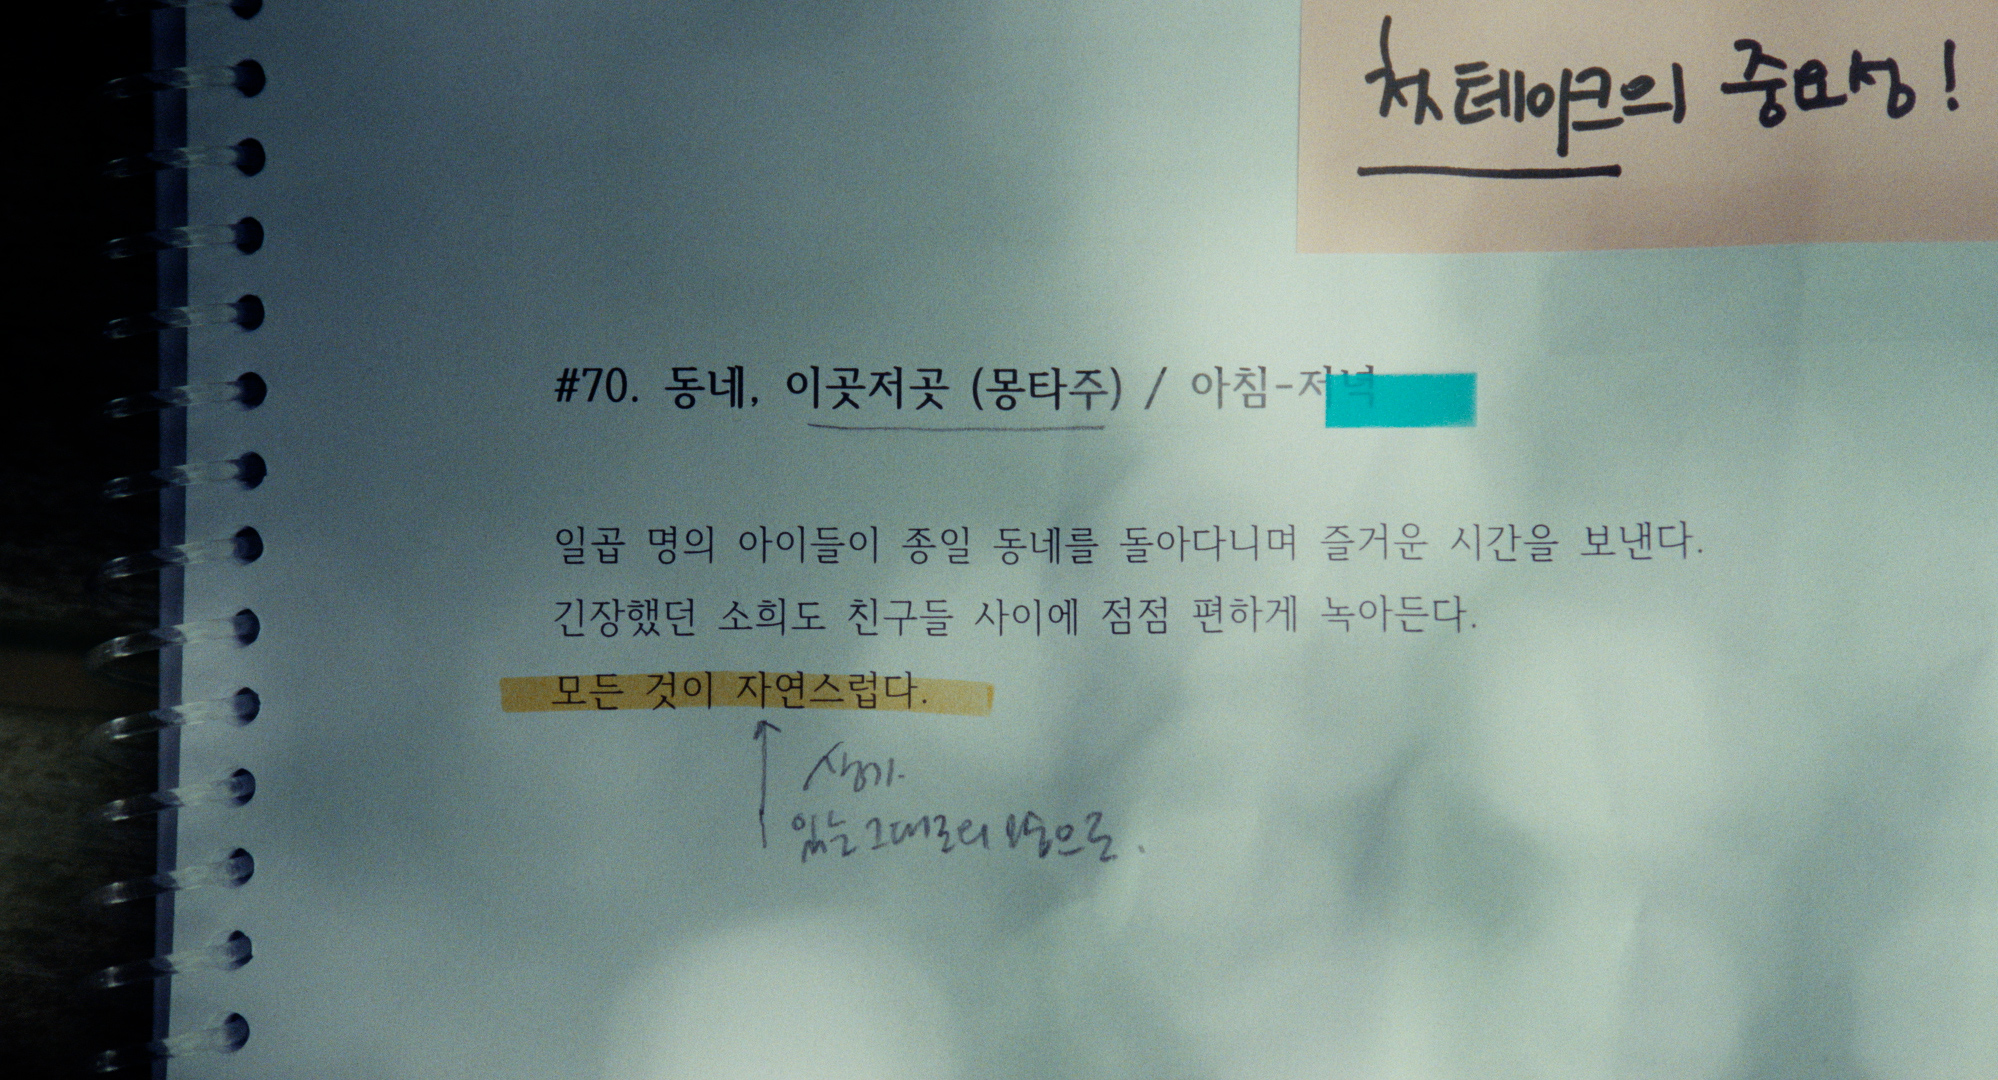 첫 테이크의 중요성!
#70. 동네, 이곳저곳 (몽타주) / 아침-저녁
일곱 명의 아이들이 종일 동네를 돌아다니며 즐거운 시간을 보낸다.
긴장했던 소희도 친구들 사이에 점점 편하게 녹아든다.
모든 것이 자연스럽다.
있는 그대로의 모습으로.